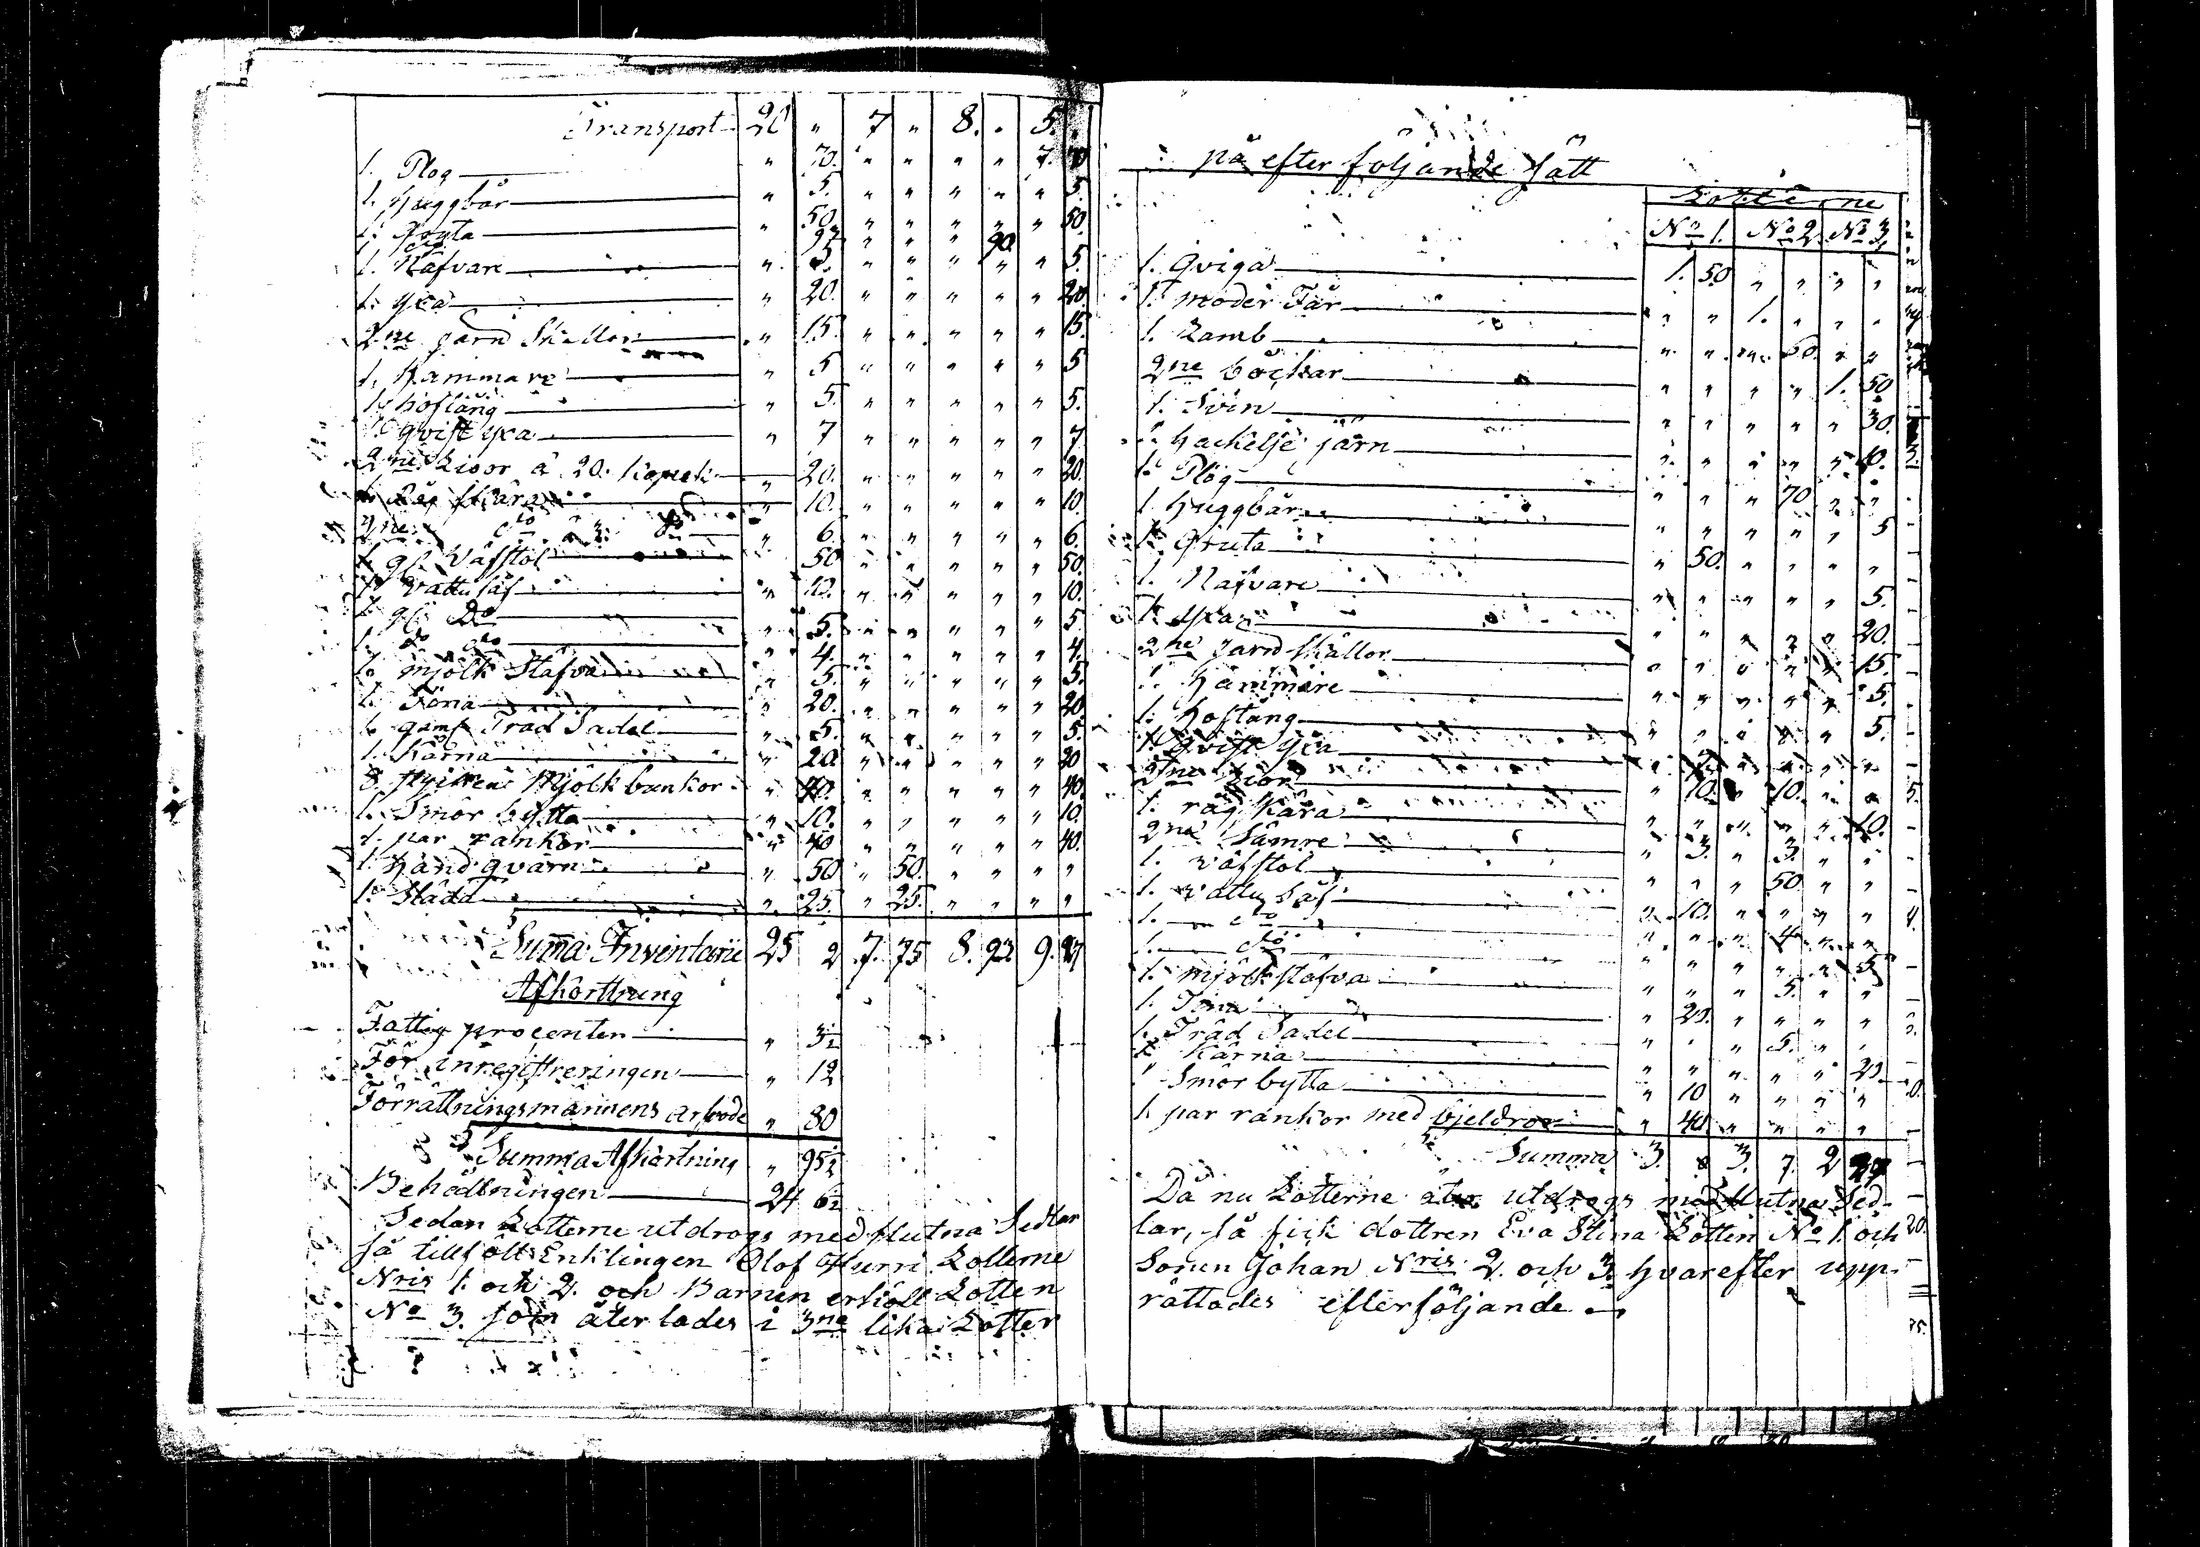 Transport 20 " 7 " 8. " 5. "
1. Plog " 70. " " " " " 70
1. Huggbår " 5. " " " " " 5.
1. Gryta " 50. " " " " " 50.
1. Näfvare " 5. " " " " " 5.
1. yxa " 20. " " " " " 20.
2ne Jarnd Skällor " 15. " " " " " 15.
1. Hammare " 5 " " " " " 5
1. hoftång " 5. " " " " " 5.
1. qvist yxa " 7 " " " " " 7.
2ne Lior a 20. Kopek " 20. " " " " " 20.
1. Råg skära " 10. " " " " " 10.
2ne do a 3. do " 6. " " " " " 6.
1. gl. Väfstol " 50 " " " " " 50.
1. Vattu såf " 10. " " " " " 10.
1. gl. Do " 5. " " " " " 5
1. do do " 4. " " " " " 4.
1. mjölk Stäfva " 5. " " " " " 5.
1. Töna " 20. " " " " " 20
1. gam. Träd Sadel " 5. " " " " " 5.
1. Kärna " 20 " " " " " 20
8. stycken Mjölkbunkor " 40. " " " " " 40.
1. Smör bytta " 10. " " " " " 10.
1. par rankor " 40 " " " " " 40.
1. Hand qvarn " 50 " 50. " " " "
1. Städ " 25. " 25. " " " "
Suma Inventarii 25 2 7. 75 8. 90 9. 27
Afkorttning
Fattig procenten " 3½
För inregistreringen " 12
Förrättningsmännens arfvode " 80
Summa Afkortning " 95½
Behållningen 24 6½
Sedan Lotterne utdrogs med slutna Sedlar
så tillföll Enklingen Olof Hurri Lotterne
Nris 1. och 2. och Barnen erhöll Lotten
No 3. som åter lades i 3ne lika Lotter
på efter följande sätt
Lotterne
No 1. No 2. No 3.
1. Qviga 1. 50 " " " "
1. moder Får " " 1. " " "
1. Lamb " " " 50. " "
2ne bockar " " " " 1. 50
1. Svin " " " " " 30.
1. hackelse järn
1. Plög " " " 70 " "
1. Huggbår " " " " " 5
1. Gruta " 50. " " " "
1. Näfvare " " " " " 5.
1. yxa " " " " " 20.
2ne Jarnd skällor " " " " " 15.
1. Hammare " " " " " 5.
1. Hoftång " " " " " 5.
1. Qvist yxa
2ne Lior " 10. " 10. " "
1. råg skära " " " " " 10.
2ne Sämre " 3. " 3. " "
1. väfstol " " " 50 " "
1. vattu Såf " 10. " " " "
1. do " " " 4. " "
1. do " " " " " 5
1. mjölk stäfva " " " 5. " "
1. Tina " 20. " " " "
1. Träd Sadel " " " 5. " "
1. Kärna " " " " " 20.
1. Smör bytta " 10 " " " "
1. par rankor med " 40 " " " "
Summa 3. 3. 7. 2 97
Då nu Lotterne åter utdrogs med slutna Sed-
lar, så fick dottren Eva Stina Lotten No 1. och
Sonen Johan Nris 2. och 3. Hvarefter upp-
rättades efterföljande